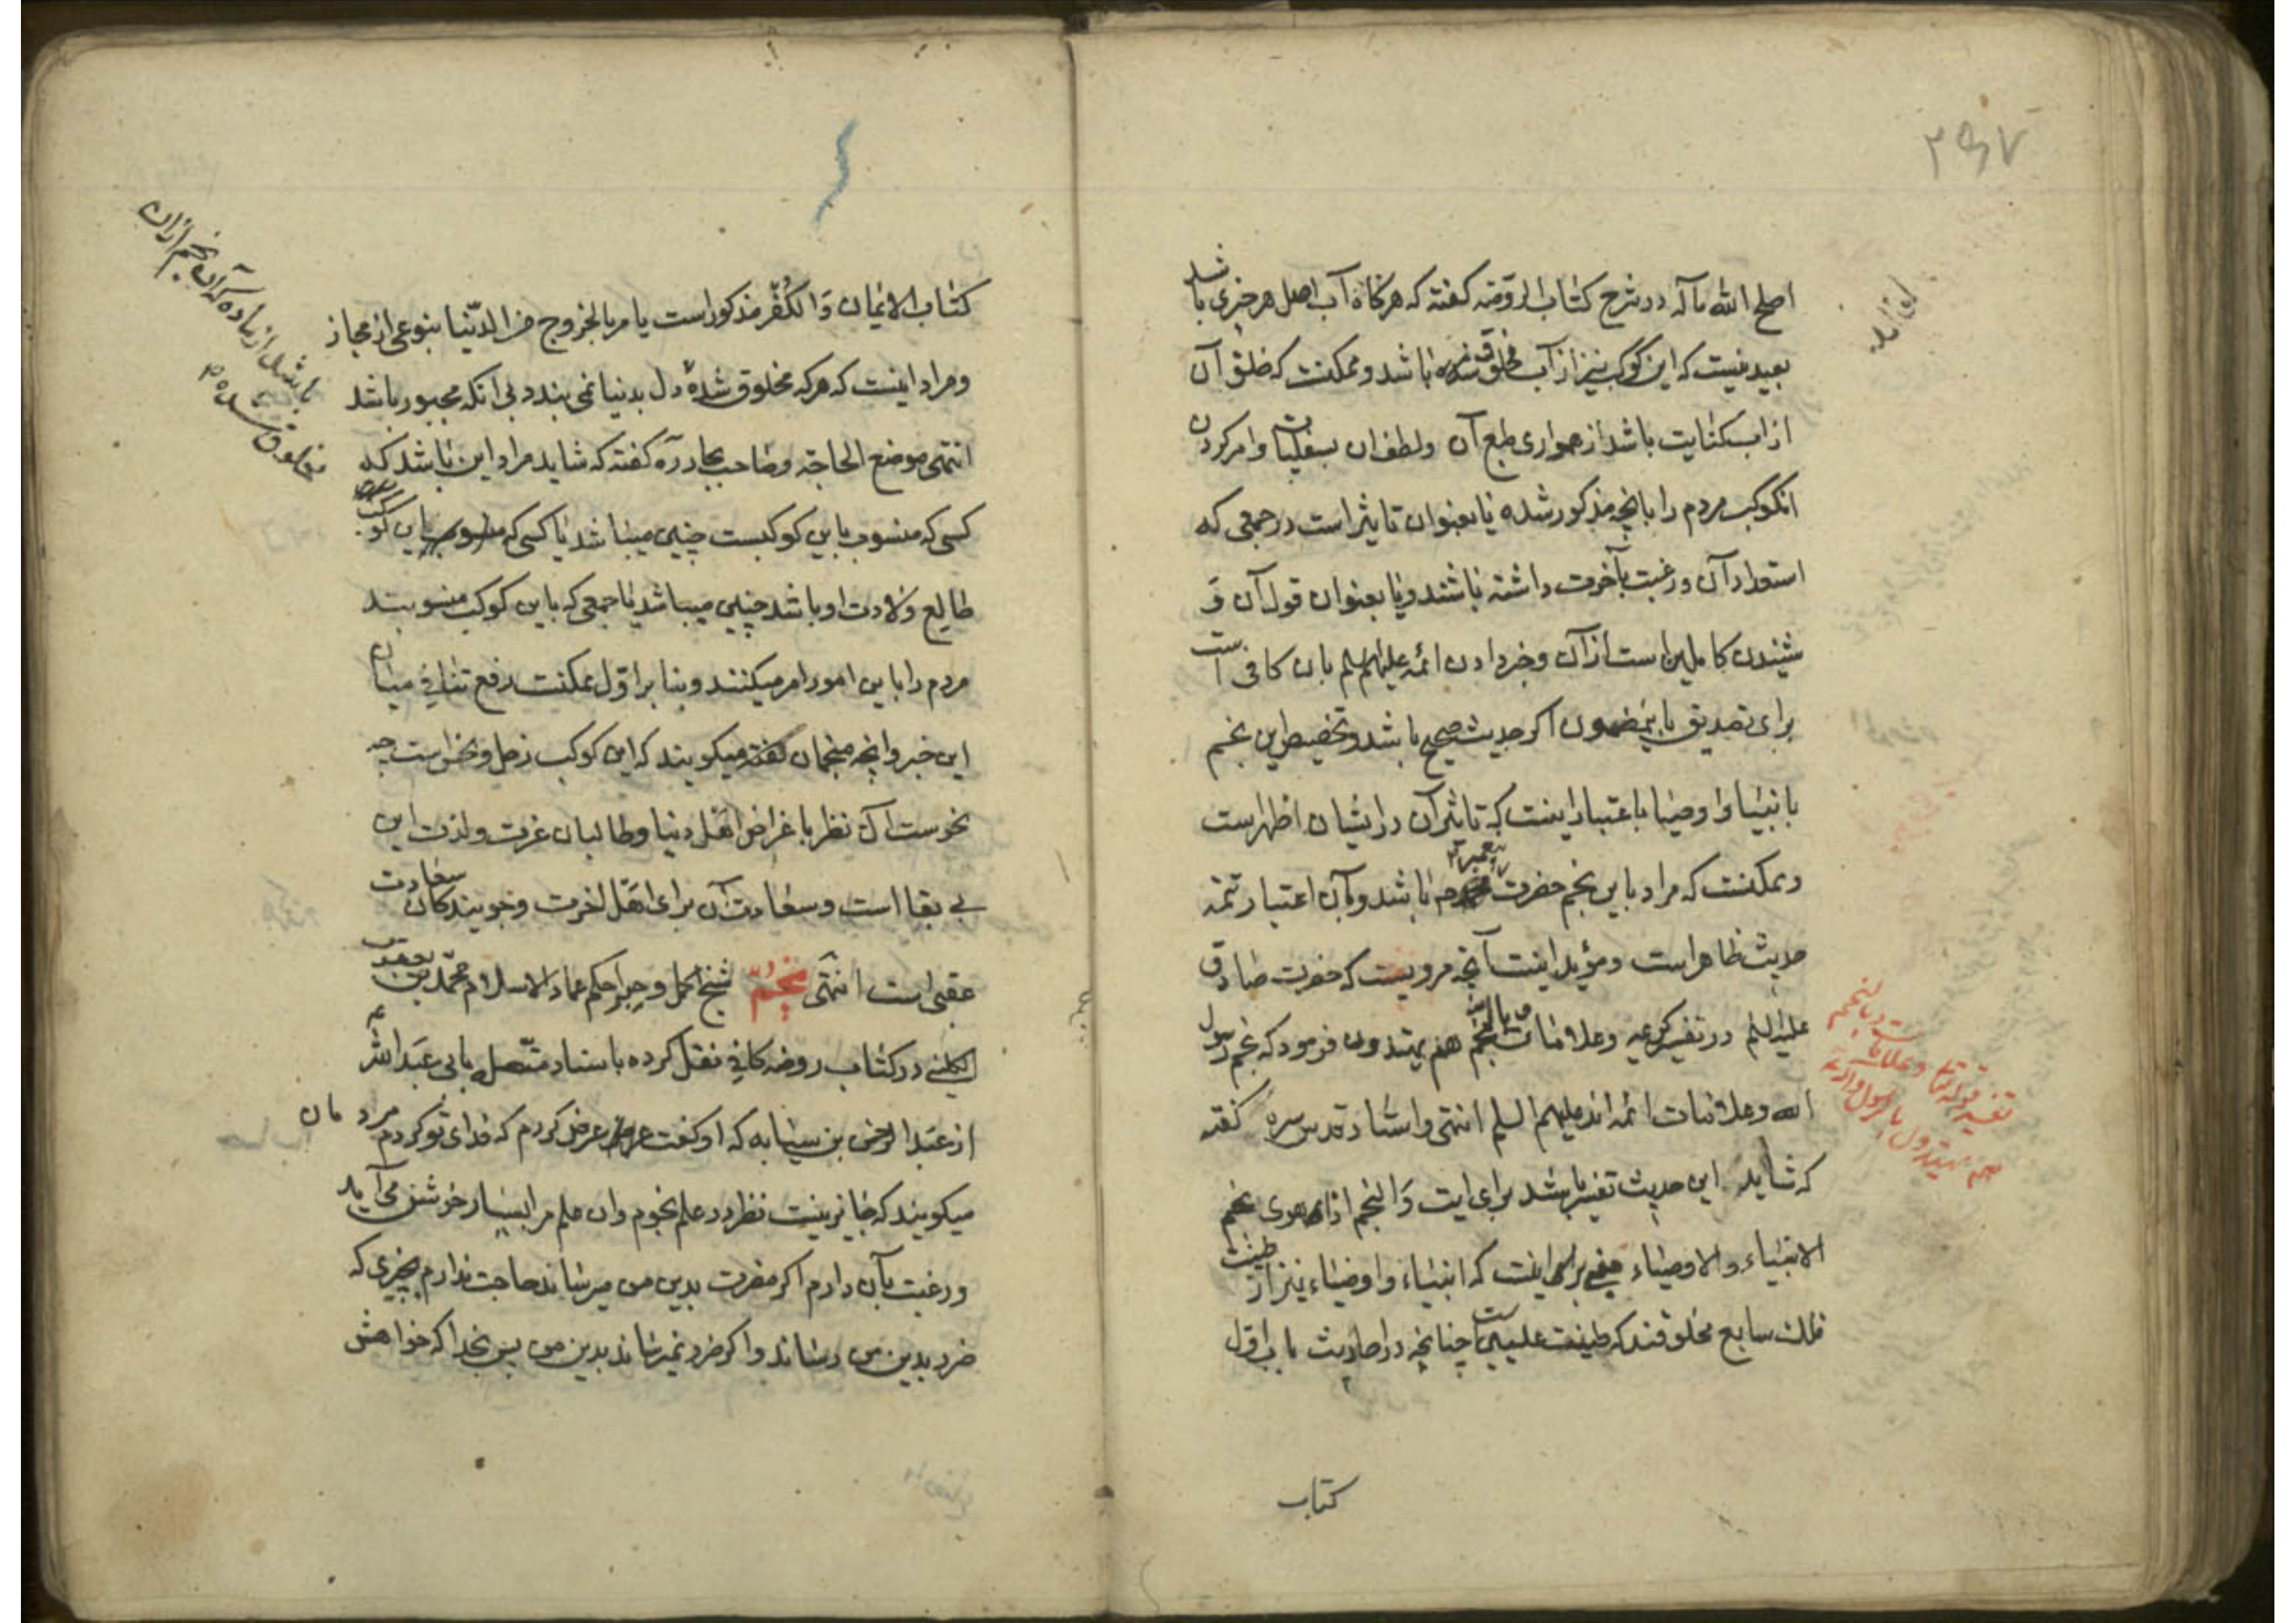 اصلح الله مآله در شرح کتاب الروضه گفته که هرگاه آب اصل هر چیزی باشد
بعید نیست که این کوکب نیز از آب مخلوق شده باشد و ممکنست که خلق آن
از آب کنایت باشد از همواری طبع آن و لطف آن بسفلیات و امر کردن
آن کوکب مردم را بآنچه مذکور شده یا بعنوان تاثیر است در جمعی که
استعداد آن و رغبت بآخرت داشته باشند و یا بعنوان قول آن و
شنیدن کاملین است از آن و خبر دادن ائمه علیهم السلم بآن کافی است
برای تصدیق باینمضمون اگر حدیث صحیح باشد و تخصیص این نجم
بانبیا و اوصیا باعتبار اینست که تاثیر آن در ایشان اظهر است
و ممکنست که مراد باین نجم حضرت پیغمبر باشد و بآن اعتبار تتمه
حدیث ظاهر است و مؤید اینست آنچه مرویست که حضرت صادق
علیه السلم در تفسیر کریمه و علامات و بالنجم هم یهتدون فرمود که نجم رسول
الله و علامات ائمه اند علیهم السلم انتهی و استاد قدس سره گفته
که شاید این حدیث تفسیر باشد برای آیت وَالنجم اذا هوی نجم
الانبیاء و الاوصیاء مبنی بر اینست که انبیاء و اوصیاء نیز از طینت
فلک سابع مخلوقند که طینت علیین است چنانچه در احادیث باب اول
کتاب
تفسیر قوله تعالی و علامات و بالنجم
هم یهتدون بالرسول و الائمه
کتاب الایمان وَ الکُفْر مذکور است یامر بالخروج من الدّنیا بنوعی از مجاز
و مراد اینست که هر که مخلوق شده دل بدنیا نمی بندد بی آنکه مجبور باشد
انتهی موضع الحاجة و صاحب بحار ره گفته که شاید مراد این باشد که
کسی که منسوب باین کوکبست چنین میباشد یا کسی که این کوکب
طالع ولادت او باشد چنین میباشد یا جمعی که باین کوکب منسوبند
مردم را باین امور امر میکنند و بنا بر اوّل ممکنست رفع تنافی میان
این خبر و آنچه منجمان میگویند که این کوکب زحل و نحس است چه
نحوست آن نظر باغراض اهل دنیا و طالبان عزت و لذت این
بی بقا است و سعادت آن برای اهل آخرت و جویندگان سعادت
عقبی است انتهَی نجُمٌ شیخ اکمل و حبر احکم عماد الاسلام محمّد بن یعقوب
الکلینی در کتاب روضه کافی نقل کرده باسناد متّصل بابی عَبد الله
از عَبد الرحمن بن سیابه که او گفت عرض کردم که فدای تو کردم مردمان
میگویند که جایز نیست نظر در علم نجوم و آن علم مرا بسیار خوش می آید
و رغبت بآن دارم اگر مضرت بدین من میرساند حاجت ندارم بچیزی که
ضرر بدین من رساند و اگر ضرر نمیرساند بدین من پس بخدا که خواهش
باشد از ماده که آن نجم از آن
مخلوق شده